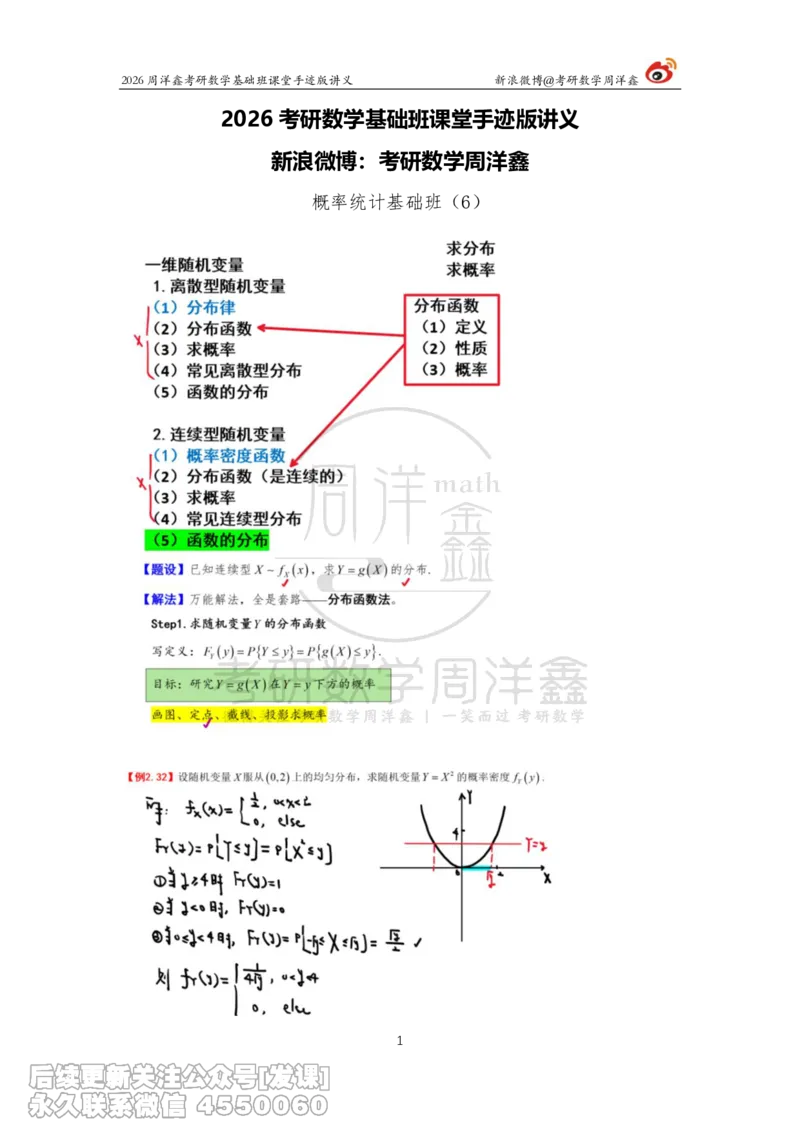 2026 周洋鑫考研数学基础班课堂手迹版讲义 新浪微博@考研数学周洋鑫
2026 考研数学基础班课堂手迹版讲义
新浪微博：考研数学周洋鑫
概率统计基础班（6）
求分布
求概率
一维随机变量
1.离散型随机变量
（1）分布律
（2）分布函数
（3）求概率
（4）常见离散型分布
（5）函数的分布
X
分布函数
（1）定义
（2）性质
（3）概率
2.连续型随机变量
（1）概率密度函数
（2）分布函数（是连续的）
（3）求概率
（4）常见连续型分布
（5）函数的分布
X
周洋 math
鑫
【题设】已知连续型 X ~ f_X(x)，求Y = g(X)的分布.
【解法】万能解法，全是套路——分布函数法。
Step1.求随机变量Y的分布函数
写定义：F_Y(y)=P{Y≤y}=P{g(X)≤y}.
考研数学周洋鑫
目标：研究Y=g(X)在Y=y下方的概率
画图、定点、截线、投影求概率
数学周洋鑫 | 一笑而过 考研数学
【例2.32】设随机变量X服从(0,2)上的均匀分布，求随机变量Y=X²的概率密度f_Y(y).
解: f_X(x)={1/2, 0<x<2
0, else
F_Y(y)=P{Y≤y}=P{X²≤y}
①当y≥4时 F_Y(y)=1
②当y<0时, F_Y(y)=0
③当0≤y<4时, F_Y(y)=P{-√y≤X≤√y}=√y/2 ✓
则 f_Y(y)={1/(4√y), 0<y<4
0, else
Y
4
Y=y
0
√y
2
X
1
后续更新关注公众号[发课]
永久联系微信 4550060